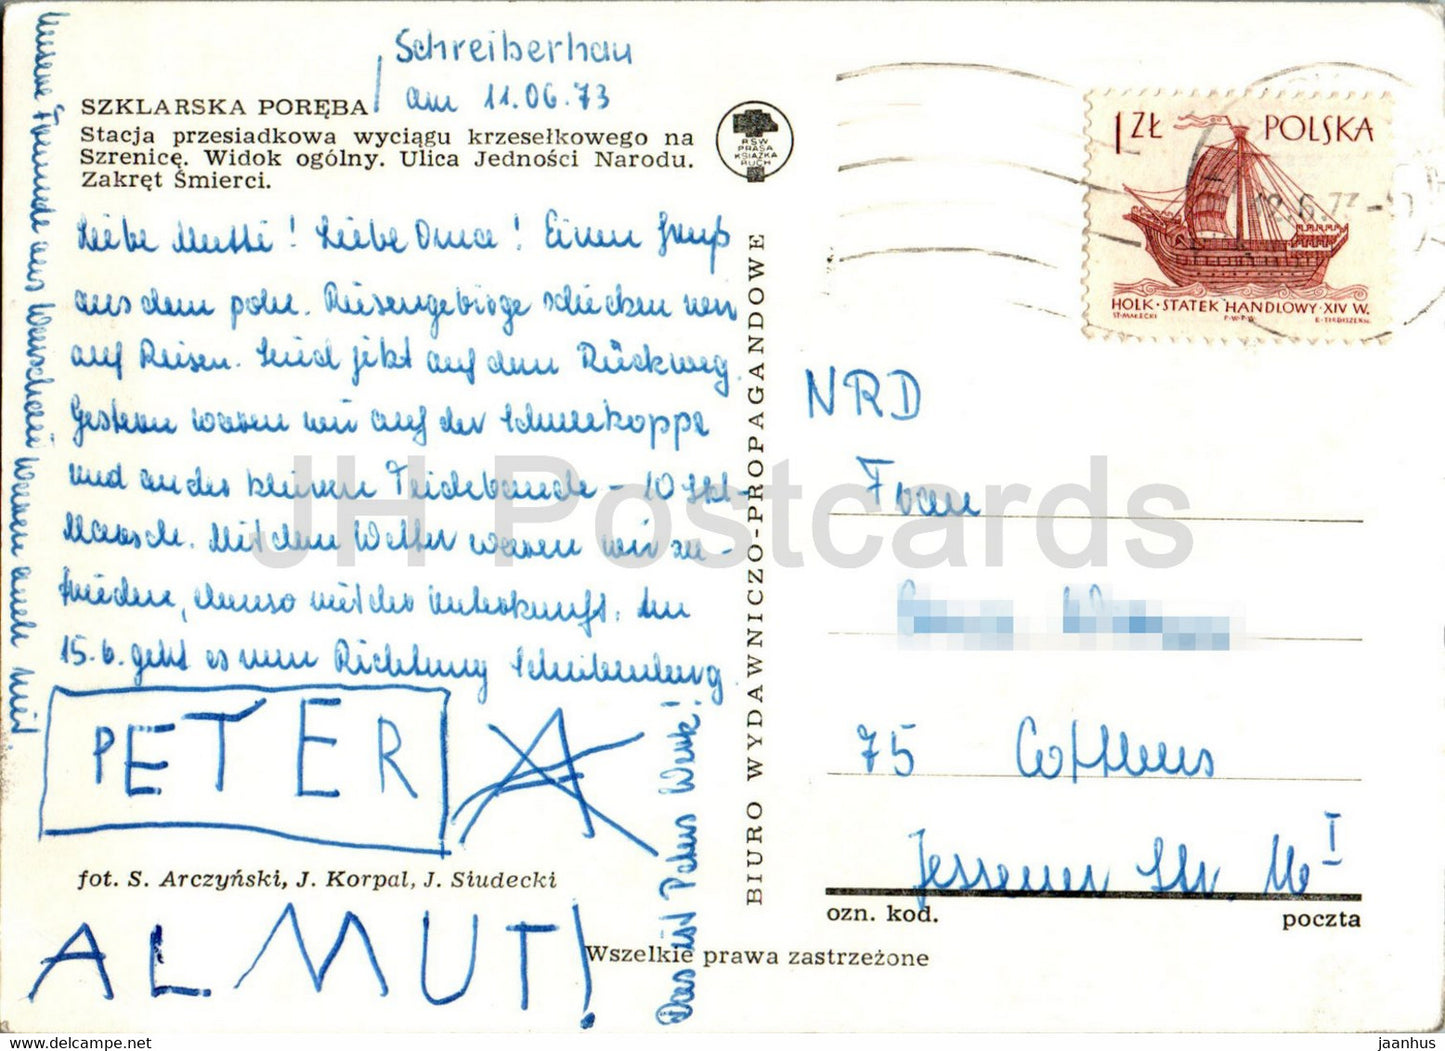 Schreiberhau
am 11.06.73
SZKLARSKA PORĘBA
Stacja przesiadkowa wyciągu krzesełkowego na
Szrenicę. Widok ogólny. Ulica Jedności Narodu.
Zakręt Śmierci.
RSW
PRASA
KSIĄŻKA
RUCH
Liebe Mutti! Liebe Oma! Einen Gruß
aus dem poln. Riesengebirge schicken wir
auf Reisen. Sind jetzt auf dem Rückweg.
Gestern waren wir auf der Schneekoppe
und an der kleinen Teichbaude - 10 Std-
Marsch. Mit dem Wetter waren wir zu-
frieden, ebenso mit der Unterkunft. Am
15.6. geht es nun Richtung
PETER
fot. S. Arczyński, J. Korpal, J. Siudecki
ALMUT!
Das ist Peters Werk!
Unsere Freunde aus Warschau waren auch mit.
BIURO WYDAWNICZO-PROPAGANDOWE
Wszelkie prawa zastrzeżone
1 ZŁ POLSKA
HOLK·STATEK HANDLOWY·XIV W.
ST·MAŁECKI P.W.P.W.
12.6.73
NRD
Frau
75 Cottbus
Jessener Str.
I
ozn. kod.
poczta
JH Postcards
www.delcampe.net
jaanhus